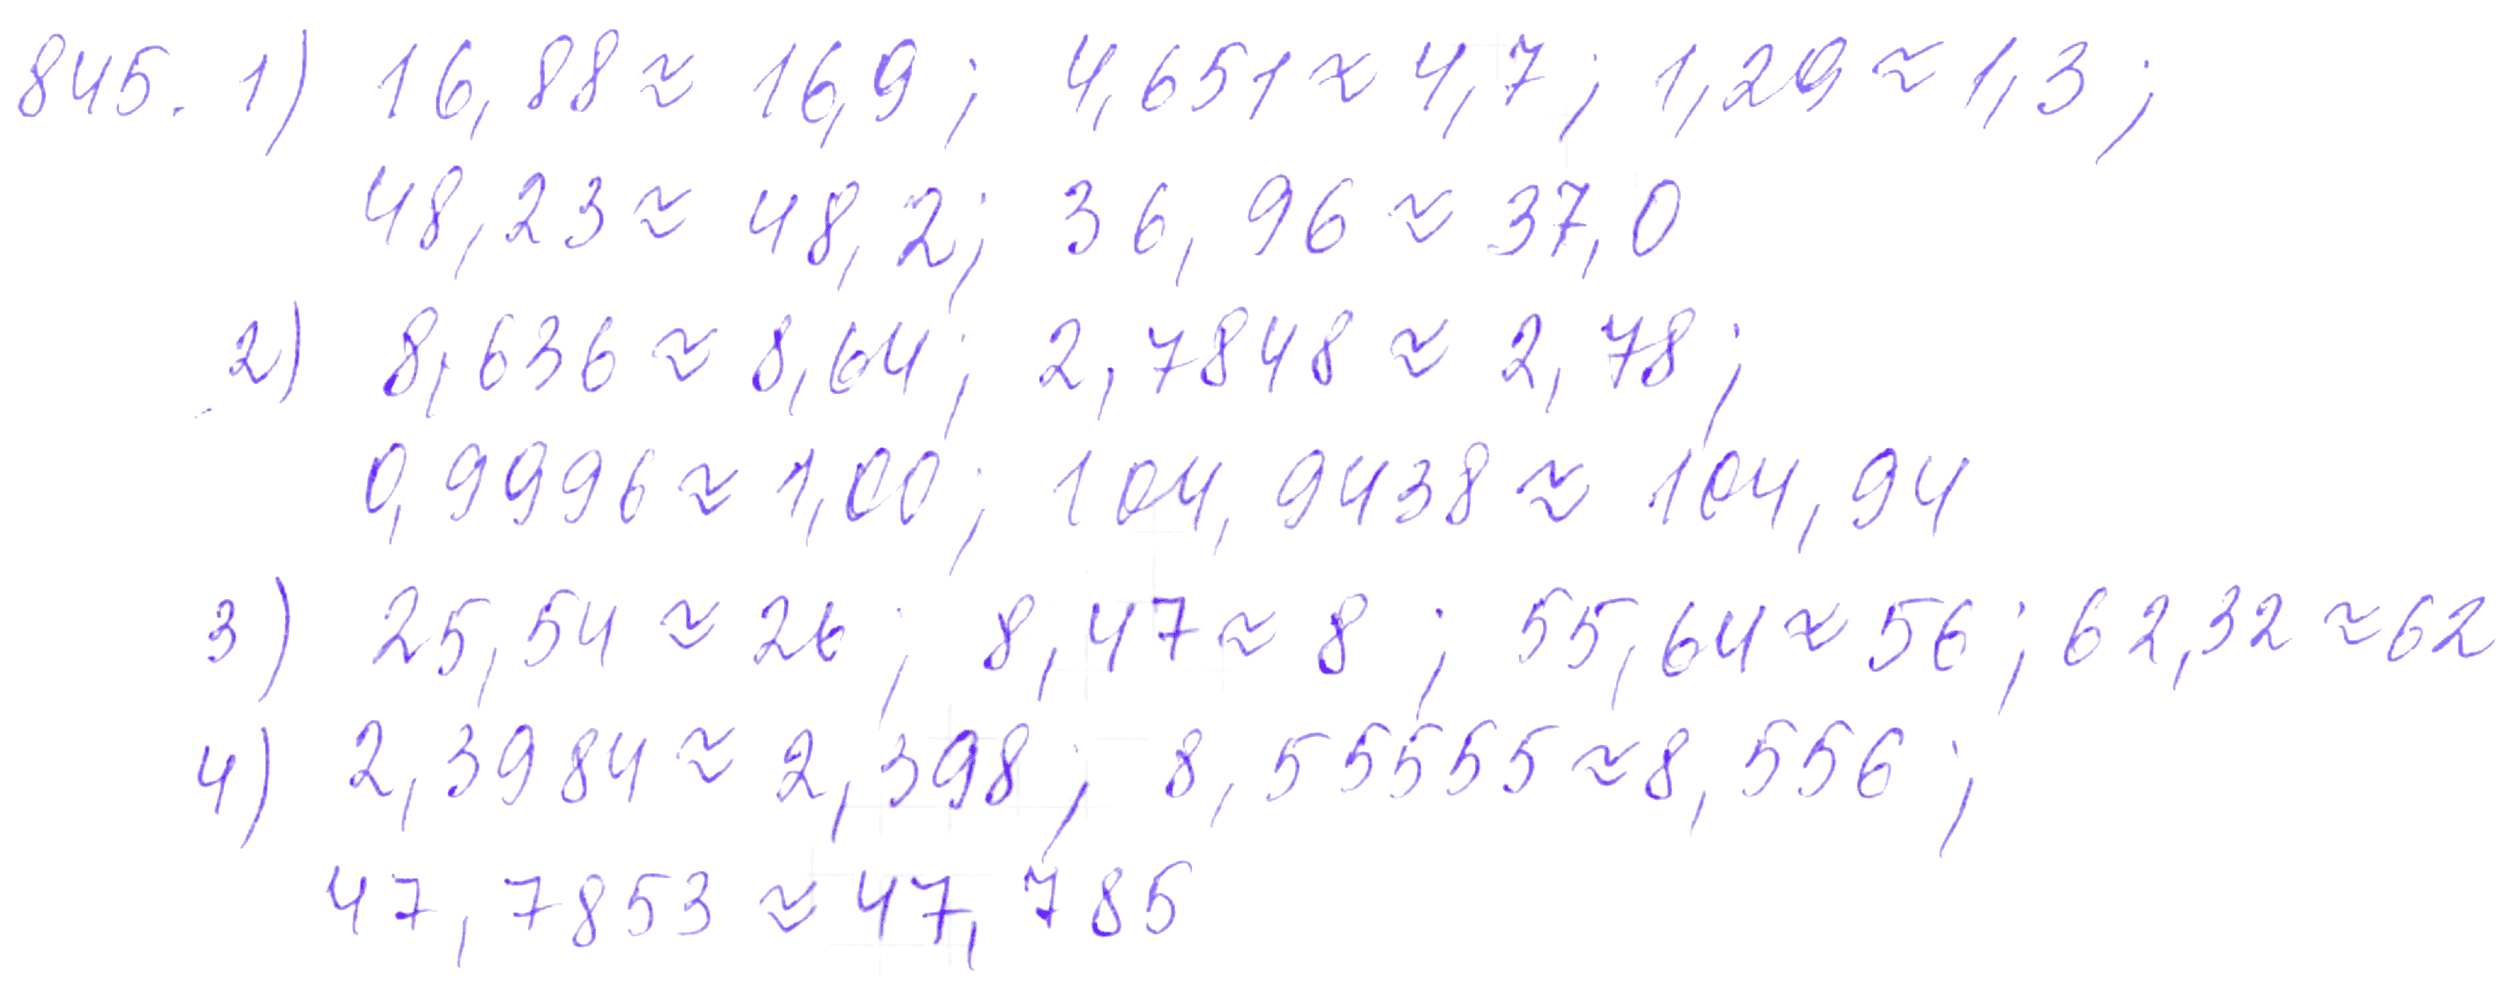 845. 1) 16,88 ≈ 16,9; 4,651 ≈ 4,7; 1,29 ≈ 1,3;
48,23 ≈ 48,2; 36,96 ≈ 37,0
2) 8,636 ≈ 8,64; 2,7848 ≈ 2,78;
0,9996 ≈ 1,00; 104,9438 ≈ 104,94
3) 25,54 ≈ 26; 8,47 ≈ 8; 55,64 ≈ 56; 62,32 ≈ 62
4) 2,3984 ≈ 2,398; 8,55555 ≈ 8,556;
47,7853 ≈ 47,785